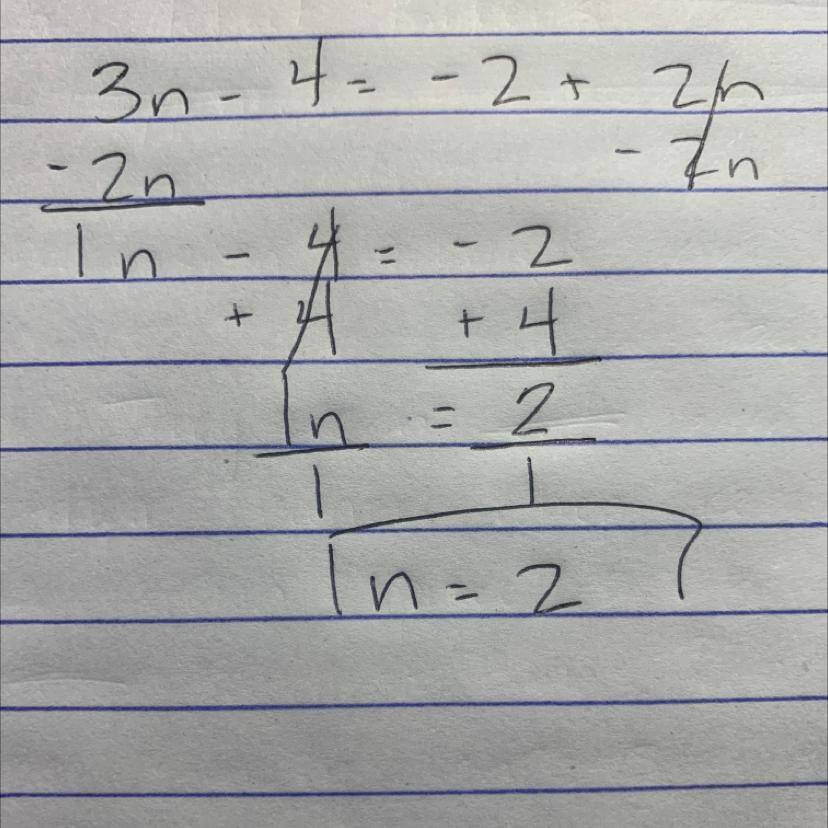 3n - 4 = -2 + 2n
-2n - 2n
1n - 4 = -2
+ 4 + 4
1n = 2
1 1
n = 2